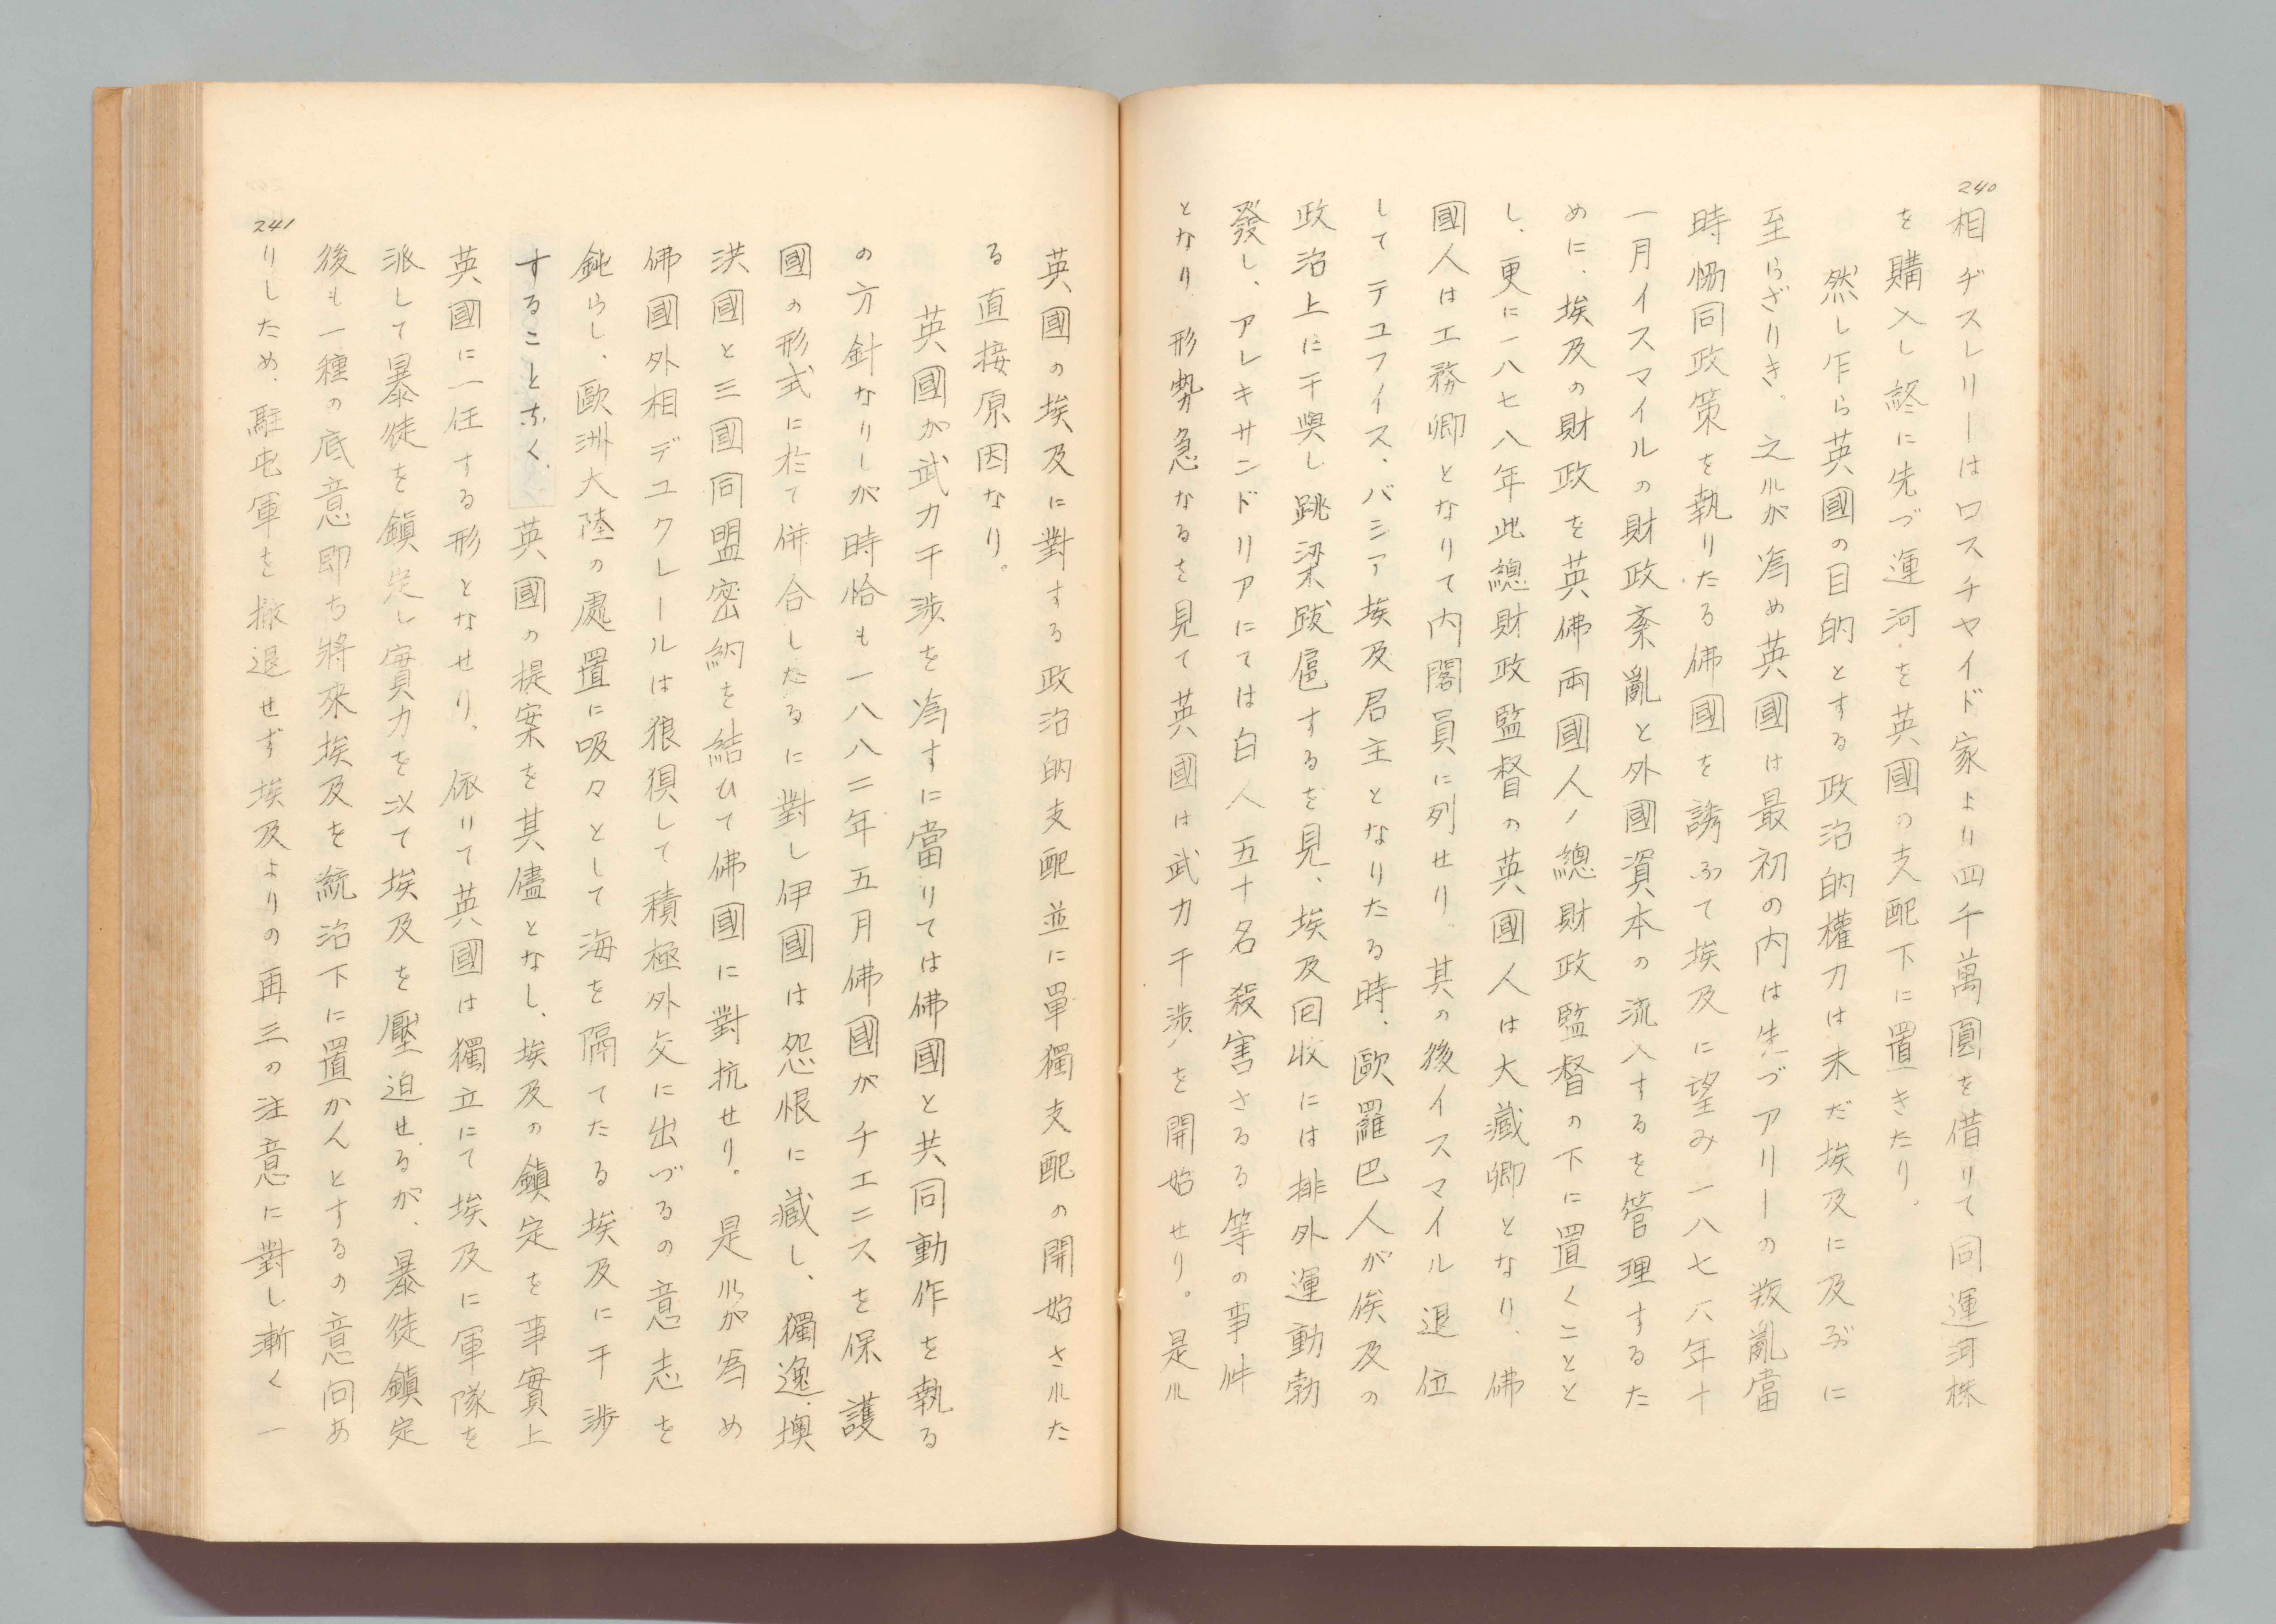 240
相ヂスレリーはロスチヤイド家より四千萬圓を借りて同運河株
を購入し終に先づ運河を英國の支配下に置きたり。
然し乍ら英國の目的とする政治的權力は未だ埃及に及ぶに
至らざりき。之れが為め英國は最初の内は先づアリーの叛亂當
時恊同政策を執りたる佛國を誘ふて埃及に望み一八七六年十
一月イスマイルの財政紊亂と外國資本の流入するを管理するた
めに、埃及の財政を英佛両國人ノ總財政監督の下に置くことと
し、更に一八七八年此總財政監督の英國人は大藏卿となり、佛
國人は工務卿となりて内閣員に列せり。其の後イスマイル退位
してテユフイス、バシア埃及君主となりたる時、歐羅巴人が埃及の
政治上に干與し跳梁跋扈するを見、埃及回收には排外運動勃
發し、アレキサンドリアにては白人五十名殺害さるる等の事件
となり形勢急なるを見て英國は武力干渉を開始せり。是れ
英國の埃及に對する政治的支配並に單獨支配の開始された
る直接原因なり。
英國が武力干渉を為すに當りては佛國と共同動作を執る
の方針なりしが時恰も一八八二年五月佛國がチエニスを保護
國の形式に於て併合したるに對し伊國は怨恨に藏し、獨逸、墺
洪國と三國同盟密約を結ひて佛國に對抗せり。是れが為め
佛國外相デユクレールは狼狽して積極外交に出づるの意志を
鈍らし、歐洲大陸の處置に吸々として海を隔てたる埃及に干渉
することなく、英國の提案を其儘となし、埃及の鎮定を事實上
英國に一任する形となせり、依りて英國は獨立にて埃及に軍隊を
派して暴徒を鎮定し實力を以て埃及を壓迫せるが、暴徒鎮定
後も一種の底意即ち將來埃及を統治下に置かんとするの意向あ
りしため、駐屯軍を撤退せず埃及よりの再三の注意に對し漸く一
241